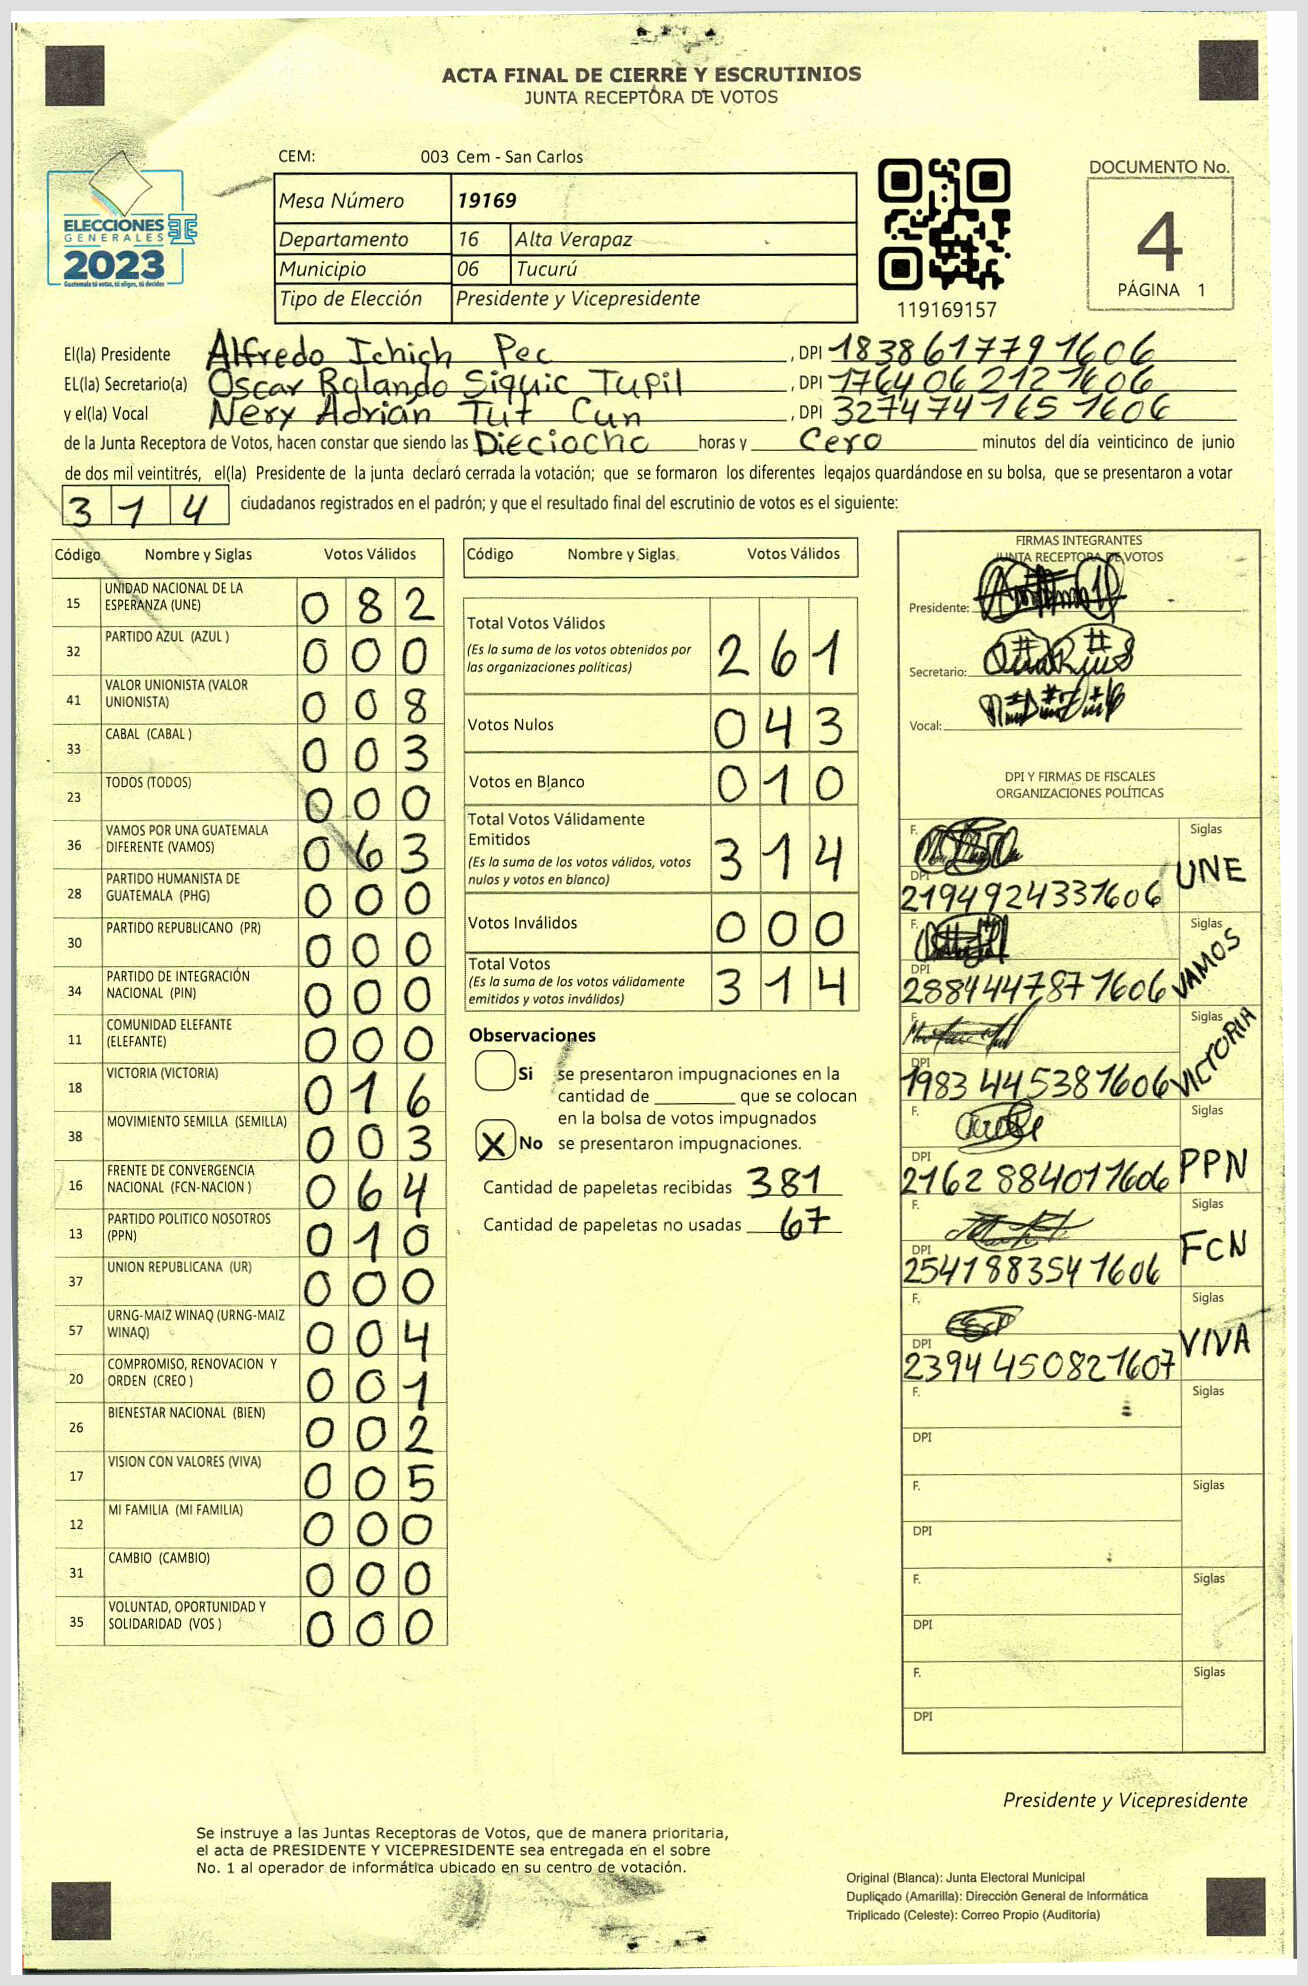 ACTA FINAL DE CIERRE Y ESCRUTINIOS
JUNTA RECEPTORA DE VOTOS
CEM: 003 Cem - San Carlos
DOCUMENTO No.
4
PÁGINA 1
ELECCIONES
GENERALES
2023
Guatemala tú votas, tú eliges, tú decides
Mesa Número 19169
Departamento 16 Alta Verapaz
Municipio 06 Tucurú
Tipo de Elección Presidente y Vicepresidente
119169157
El(la) Presidente Alfredo Ichich Pec , DPI 1838617791606
EL(la) Secretario(a) Oscar Rolando Siquic Tupil , DPI 1764062121606
y el(la) Vocal Nery Adrián Tut Cun , DPI 3274741651606
de la Junta Receptora de Votos, hacen constar que siendo las Dieciocho horas y Cero minutos del día veinticinco de junio
de dos mil veintitrés, el(la) Presidente de la junta declaró cerrada la votación; que se formaron los diferentes legajos quardándose en su bolsa, que se presentaron a votar
314 ciudadanos registrados en el padrón; y que el resultado final del escrutinio de votos es el siguiente:
Código Nombre y Siglas Votos Válidos
15 UNIDAD NACIONAL DE LA ESPERANZA (UNE) 082
32 PARTIDO AZUL (AZUL ) 000
41 VALOR UNIONISTA (VALOR UNIONISTA) 008
33 CABAL (CABAL ) 003
23 TODOS (TODOS) 000
36 VAMOS POR UNA GUATEMALA DIFERENTE (VAMOS) 063
28 PARTIDO HUMANISTA DE GUATEMALA (PHG) 000
30 PARTIDO REPUBLICANO (PR) 000
34 PARTIDO DE INTEGRACIÓN NACIONAL (PIN) 000
11 COMUNIDAD ELEFANTE (ELEFANTE) 000
18 VICTORIA (VICTORIA) 016
38 MOVIMIENTO SEMILLA (SEMILLA) 003
16 FRENTE DE CONVERGENCIA NACIONAL (FCN-NACION ) 064
13 PARTIDO POLITICO NOSOTROS (PPN) 010
37 UNION REPUBLICANA (UR) 000
57 URNG-MAIZ WINAQ (URNG-MAIZ WINAQ) 004
20 COMPROMISO, RENOVACION Y ORDEN (CREO ) 001
26 BIENESTAR NACIONAL (BIEN) 002
17 VISION CON VALORES (VIVA) 005
12 MI FAMILIA (MI FAMILIA) 000
31 CAMBIO (CAMBIO) 000
35 VOLUNTAD, OPORTUNIDAD Y SOLIDARIDAD (VOS ) 000
Código Nombre y Siglas Votos Válidos
Total Votos Válidos 261
(Es la suma de los votos obtenidos por
las organizaciones políticas)
Votos Nulos 043
Votos en Blanco 010
Total Votos Válidamente
Emitidos 314
(Es la suma de los votos válidos, votos
nulos y votos en blanco)
Votos Inválidos 000
Total Votos 314
(Es la suma de los votos válidamente
emitidos y votos inválidos)
Observaciones
Si se presentaron impugnaciones en la
cantidad de ________ que se colocan
en la bolsa de votos impugnados
X No se presentaron impugnaciones.
Cantidad de papeletas recibidas 381
Cantidad de papeletas no usadas 67
FIRMAS INTEGRANTES
JUNTA RECEPTORA DE VOTOS
Presidente:
Secretario:
Vocal:
DPI Y FIRMAS DE FISCALES
ORGANIZACIONES POLÍTICAS
F. Siglas UNE
DPI 2194924331606
F. Siglas VAMOS
DPI 2884447871606
F. Siglas VICTORIA
DPI 1983445381606
F. Siglas PPN
DPI 2162884011606
F. Siglas FCN
DPI 2541883541606
F. Siglas VIVA
DPI 2394450821607
F. Siglas
DPI
F. Siglas
DPI
F. Siglas
DPI
F. Siglas
DPI
Presidente y Vicepresidente
Se instruye a las Juntas Receptoras de Votos, que de manera prioritaria,
el acta de PRESIDENTE Y VICEPRESIDENTE sea entregada en el sobre
No. 1 al operador de informática ubicado en su centro de votación.
Original (Blanca): Junta Electoral Municipal
Duplicado (Amarilla): Dirección General de Informática
Triplicado (Celeste): Correo Propio (Auditoría)